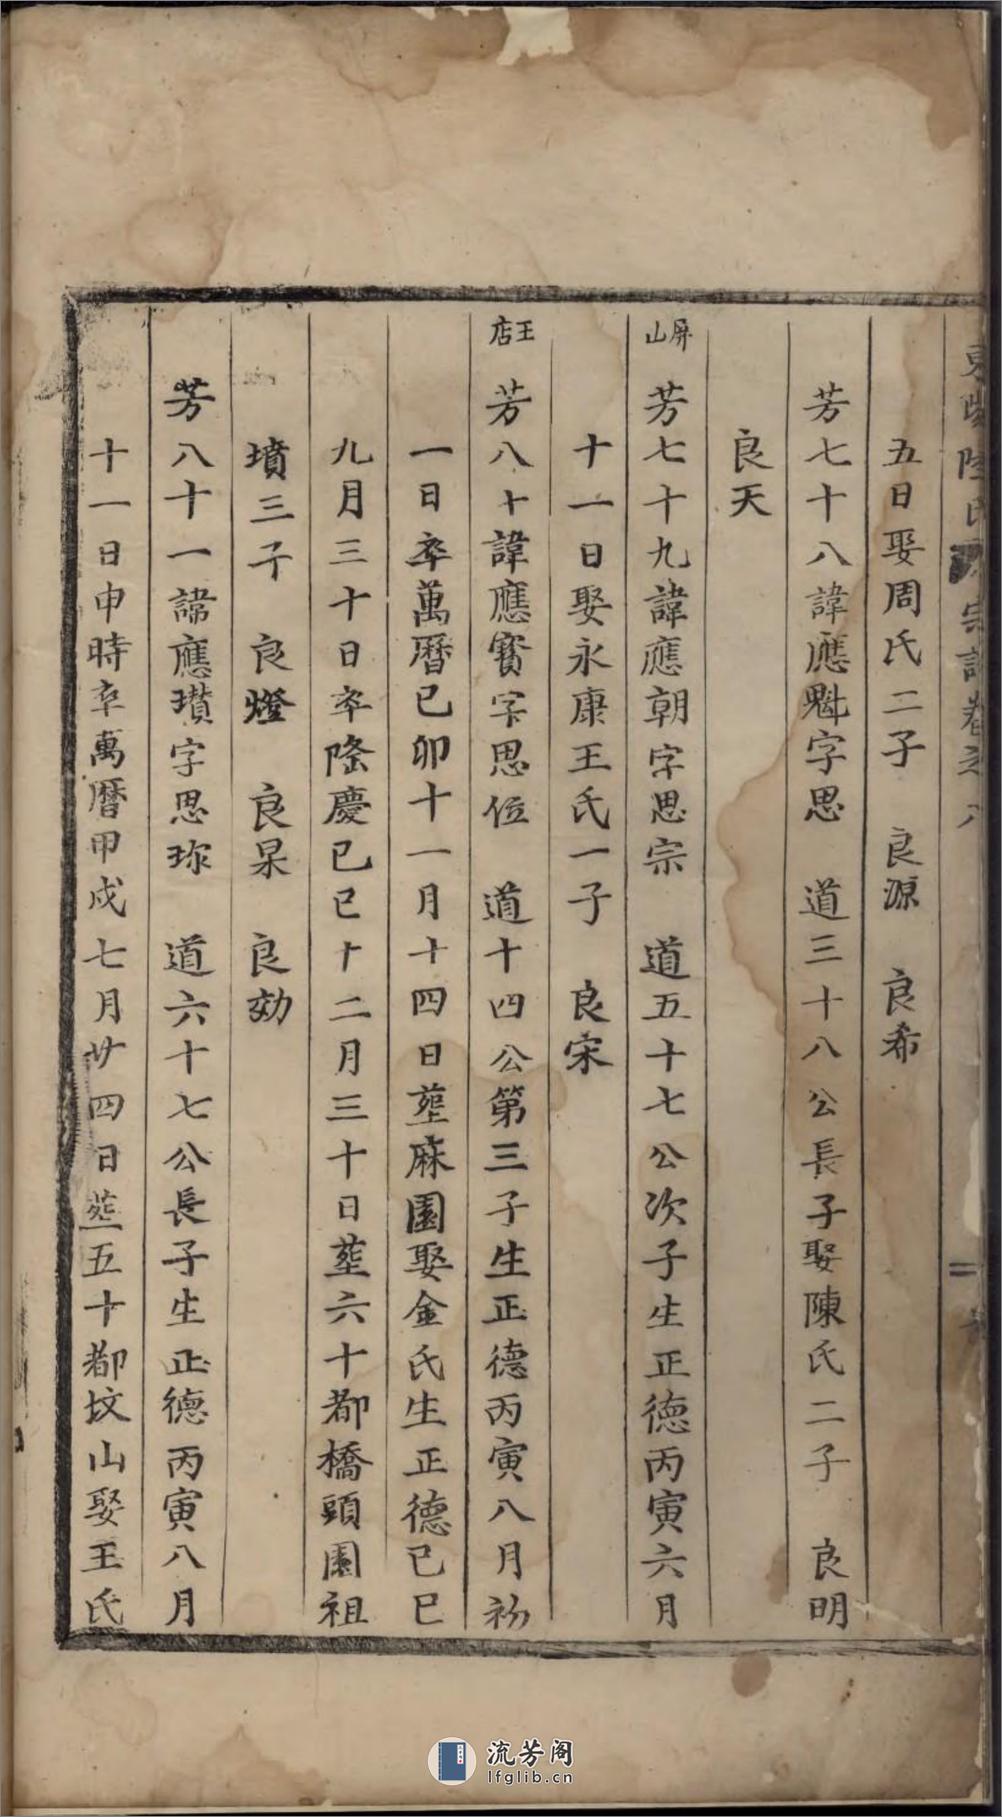 五日娶周氏二子　良源　良希
芳七十八諱應魁字思　道三十八公長子娶陳氏二子　良明
良天
屏山
芳七十九諱應朝字思宗　道五十七公次子生正德丙寅六月
十一日娶永康王氏一子　良宋
王店
芳八十諱應賓字思位　道十四公第三子生正德丙寅八月初
一日卒萬曆己卯十一月十四日塟麻園娶金氏生正德己巳
九月三十日卒隆慶己巳十二月三十日塟六十都橋頭園祖
墳三子　良燈　良杲　良効
芳八十一諱應瓚字思珎　道六十七公長子生正德丙寅八月
十一日申時卒萬曆甲戌七月廿四日塟五十都坟山娶王氏
流芳阁
lfglib.cn